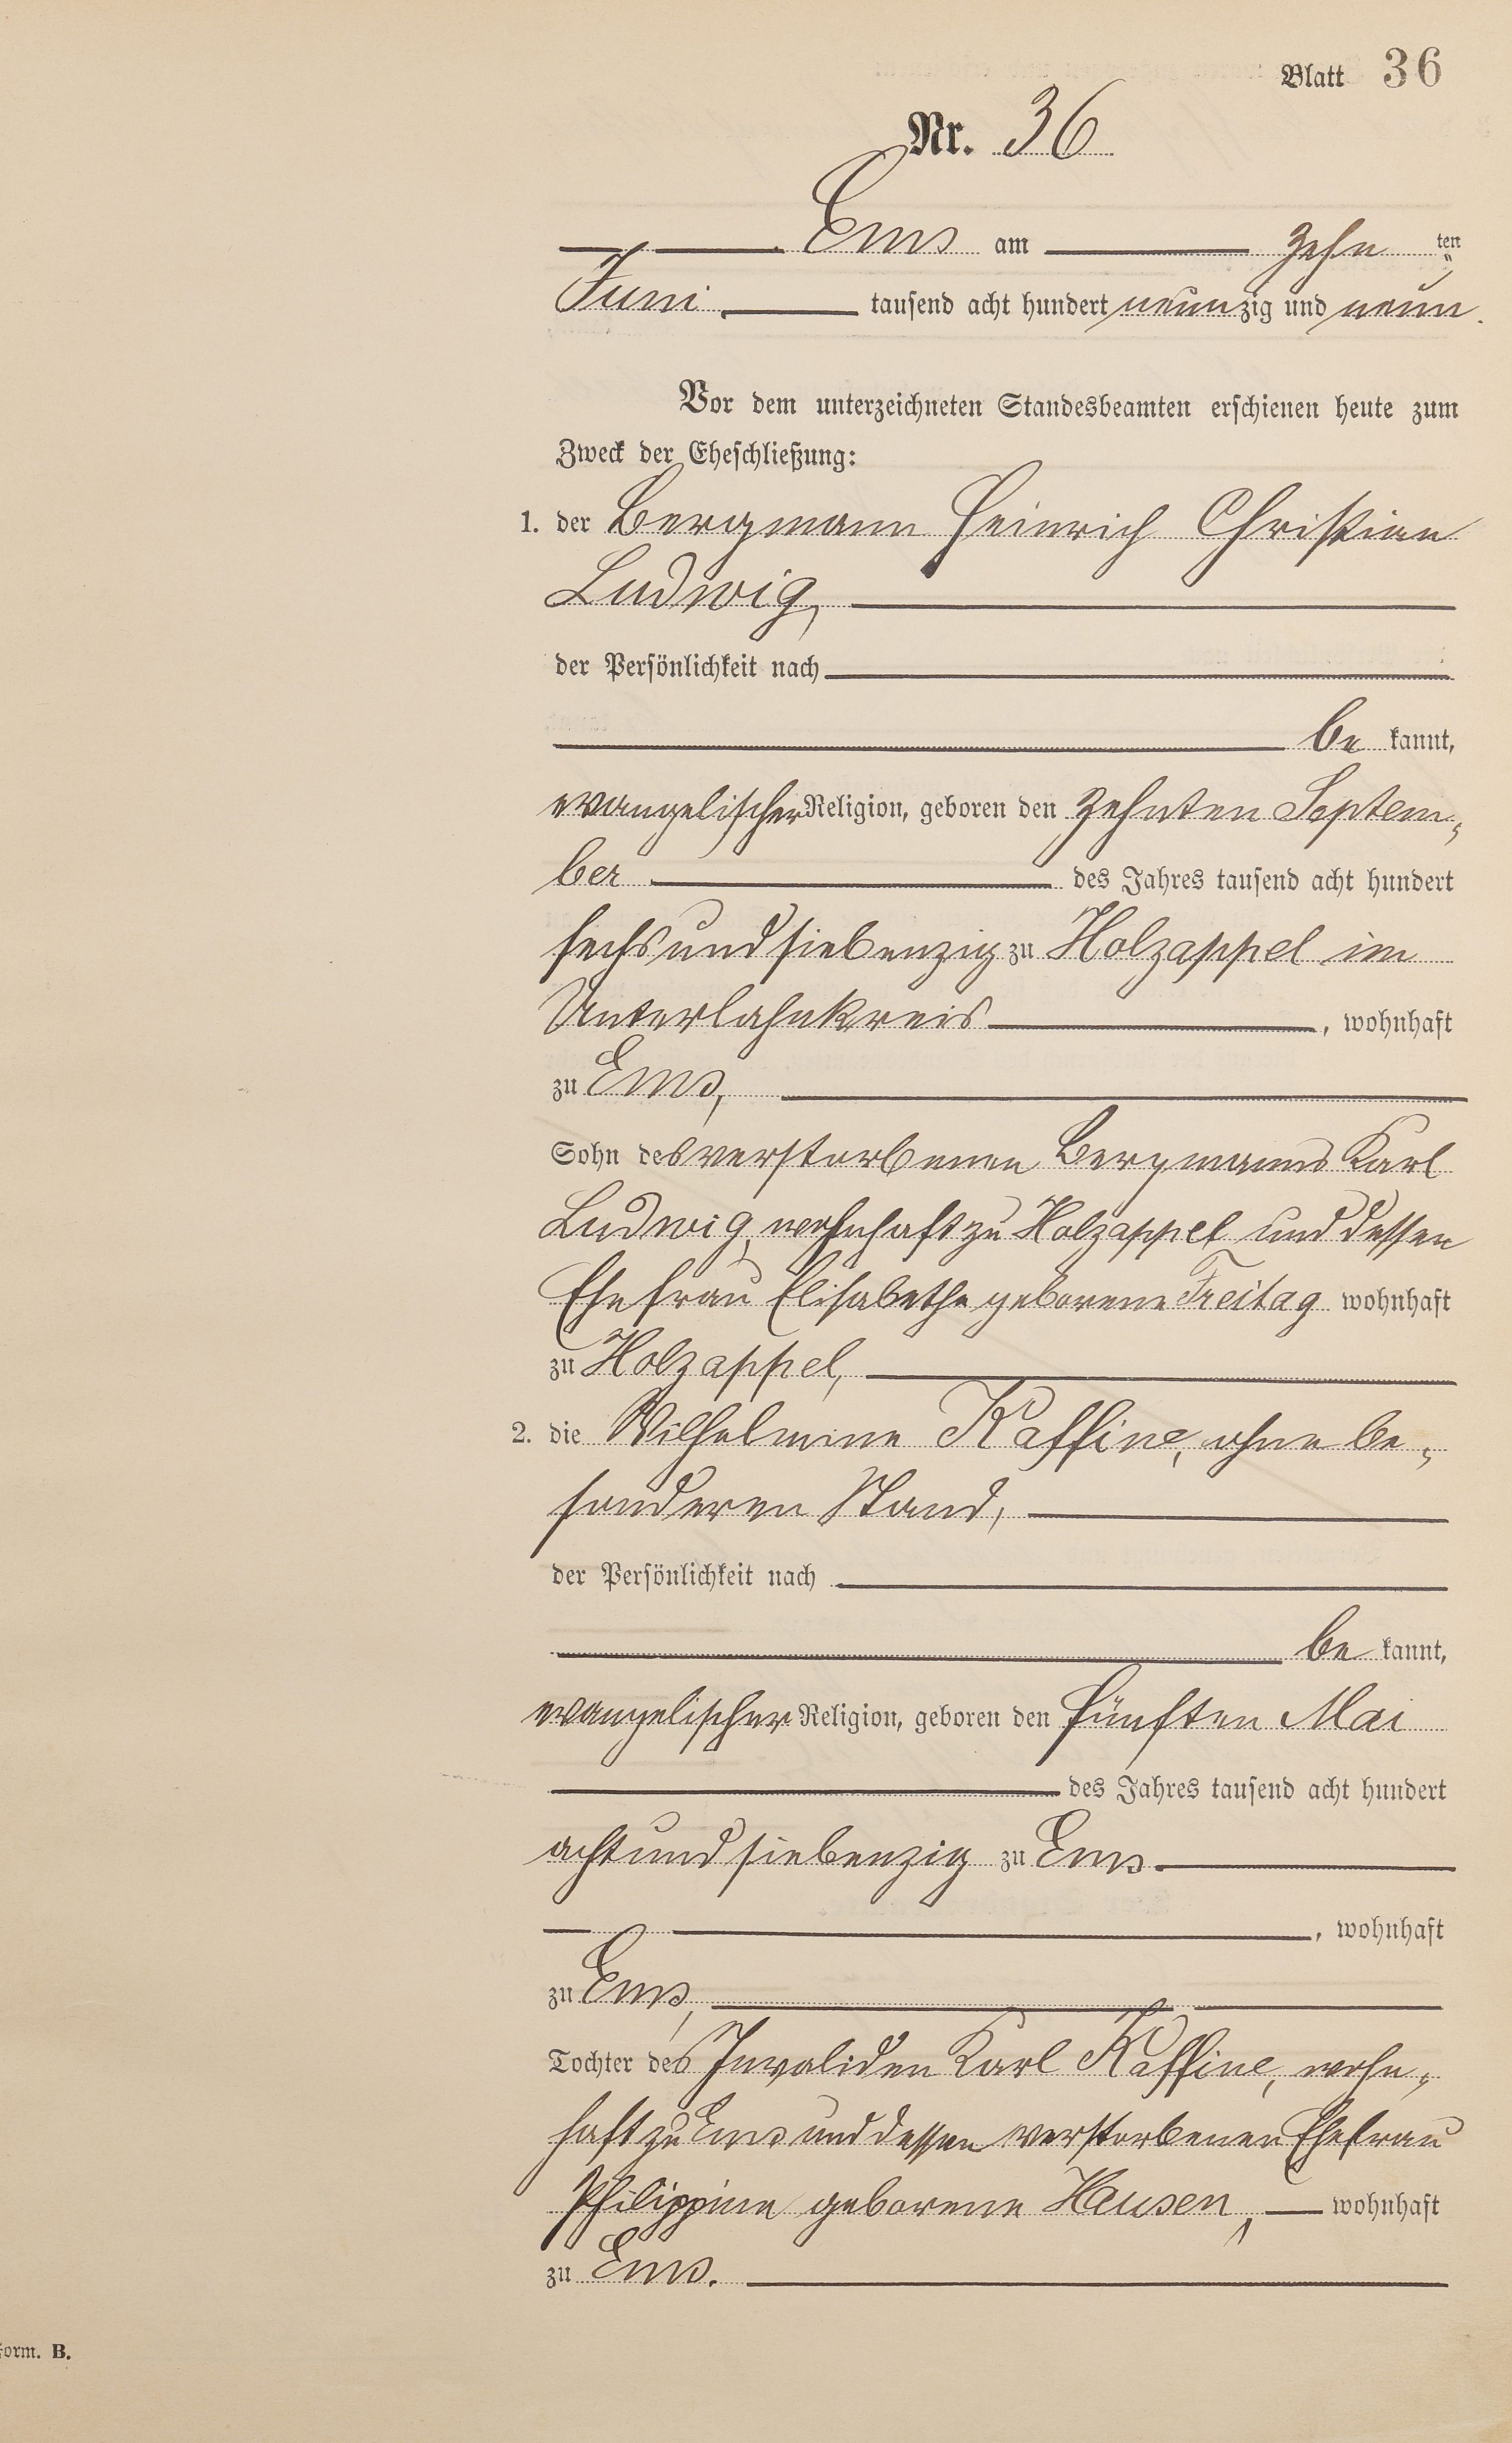 Blatt 36
Nr. 36
Ems am zehn ten
Juni tausend acht hundert neunzig und neun.
Vor dem unterzeichneten Standesbeamten erschienen heute zum
Zweck der Eheschließung:
1. der Bergmann Heinrich Christian
Ludwig,
der Persönlichkeit nach
be kannt,
evangelischer Religion, geboren den zehnten Septem-
ber des Jahres tausend acht hundert
sechsundsiebenzig zu Holzappel im
Unterlahnkreis, wohnhaft
zu Ems,
Sohn des verstorbenen Bergmanns Karl
Ludwig, wohnhaft zu Holzappel und dessen
Ehefrau Elisabethe geborene Freitag wohnhaft
zu Holzappel,
2. die Wilhelmine Kaffine, ohne be-
sonderen Stand,
der Persönlichkeit nach
be kannt,
evangelischer Religion, geboren den fünften Mai
des Jahres tausend acht hundert
achtundsiebenzig zu Ems.
, wohnhaft
zu Ems,
Tochter des Invaliden Karl Kaffine, wohn-
haft zu Ems und dessen verstorbenen Ehefrau
Philippine geborene Hausen, wohnhaft
zu Ems.
Form. B.